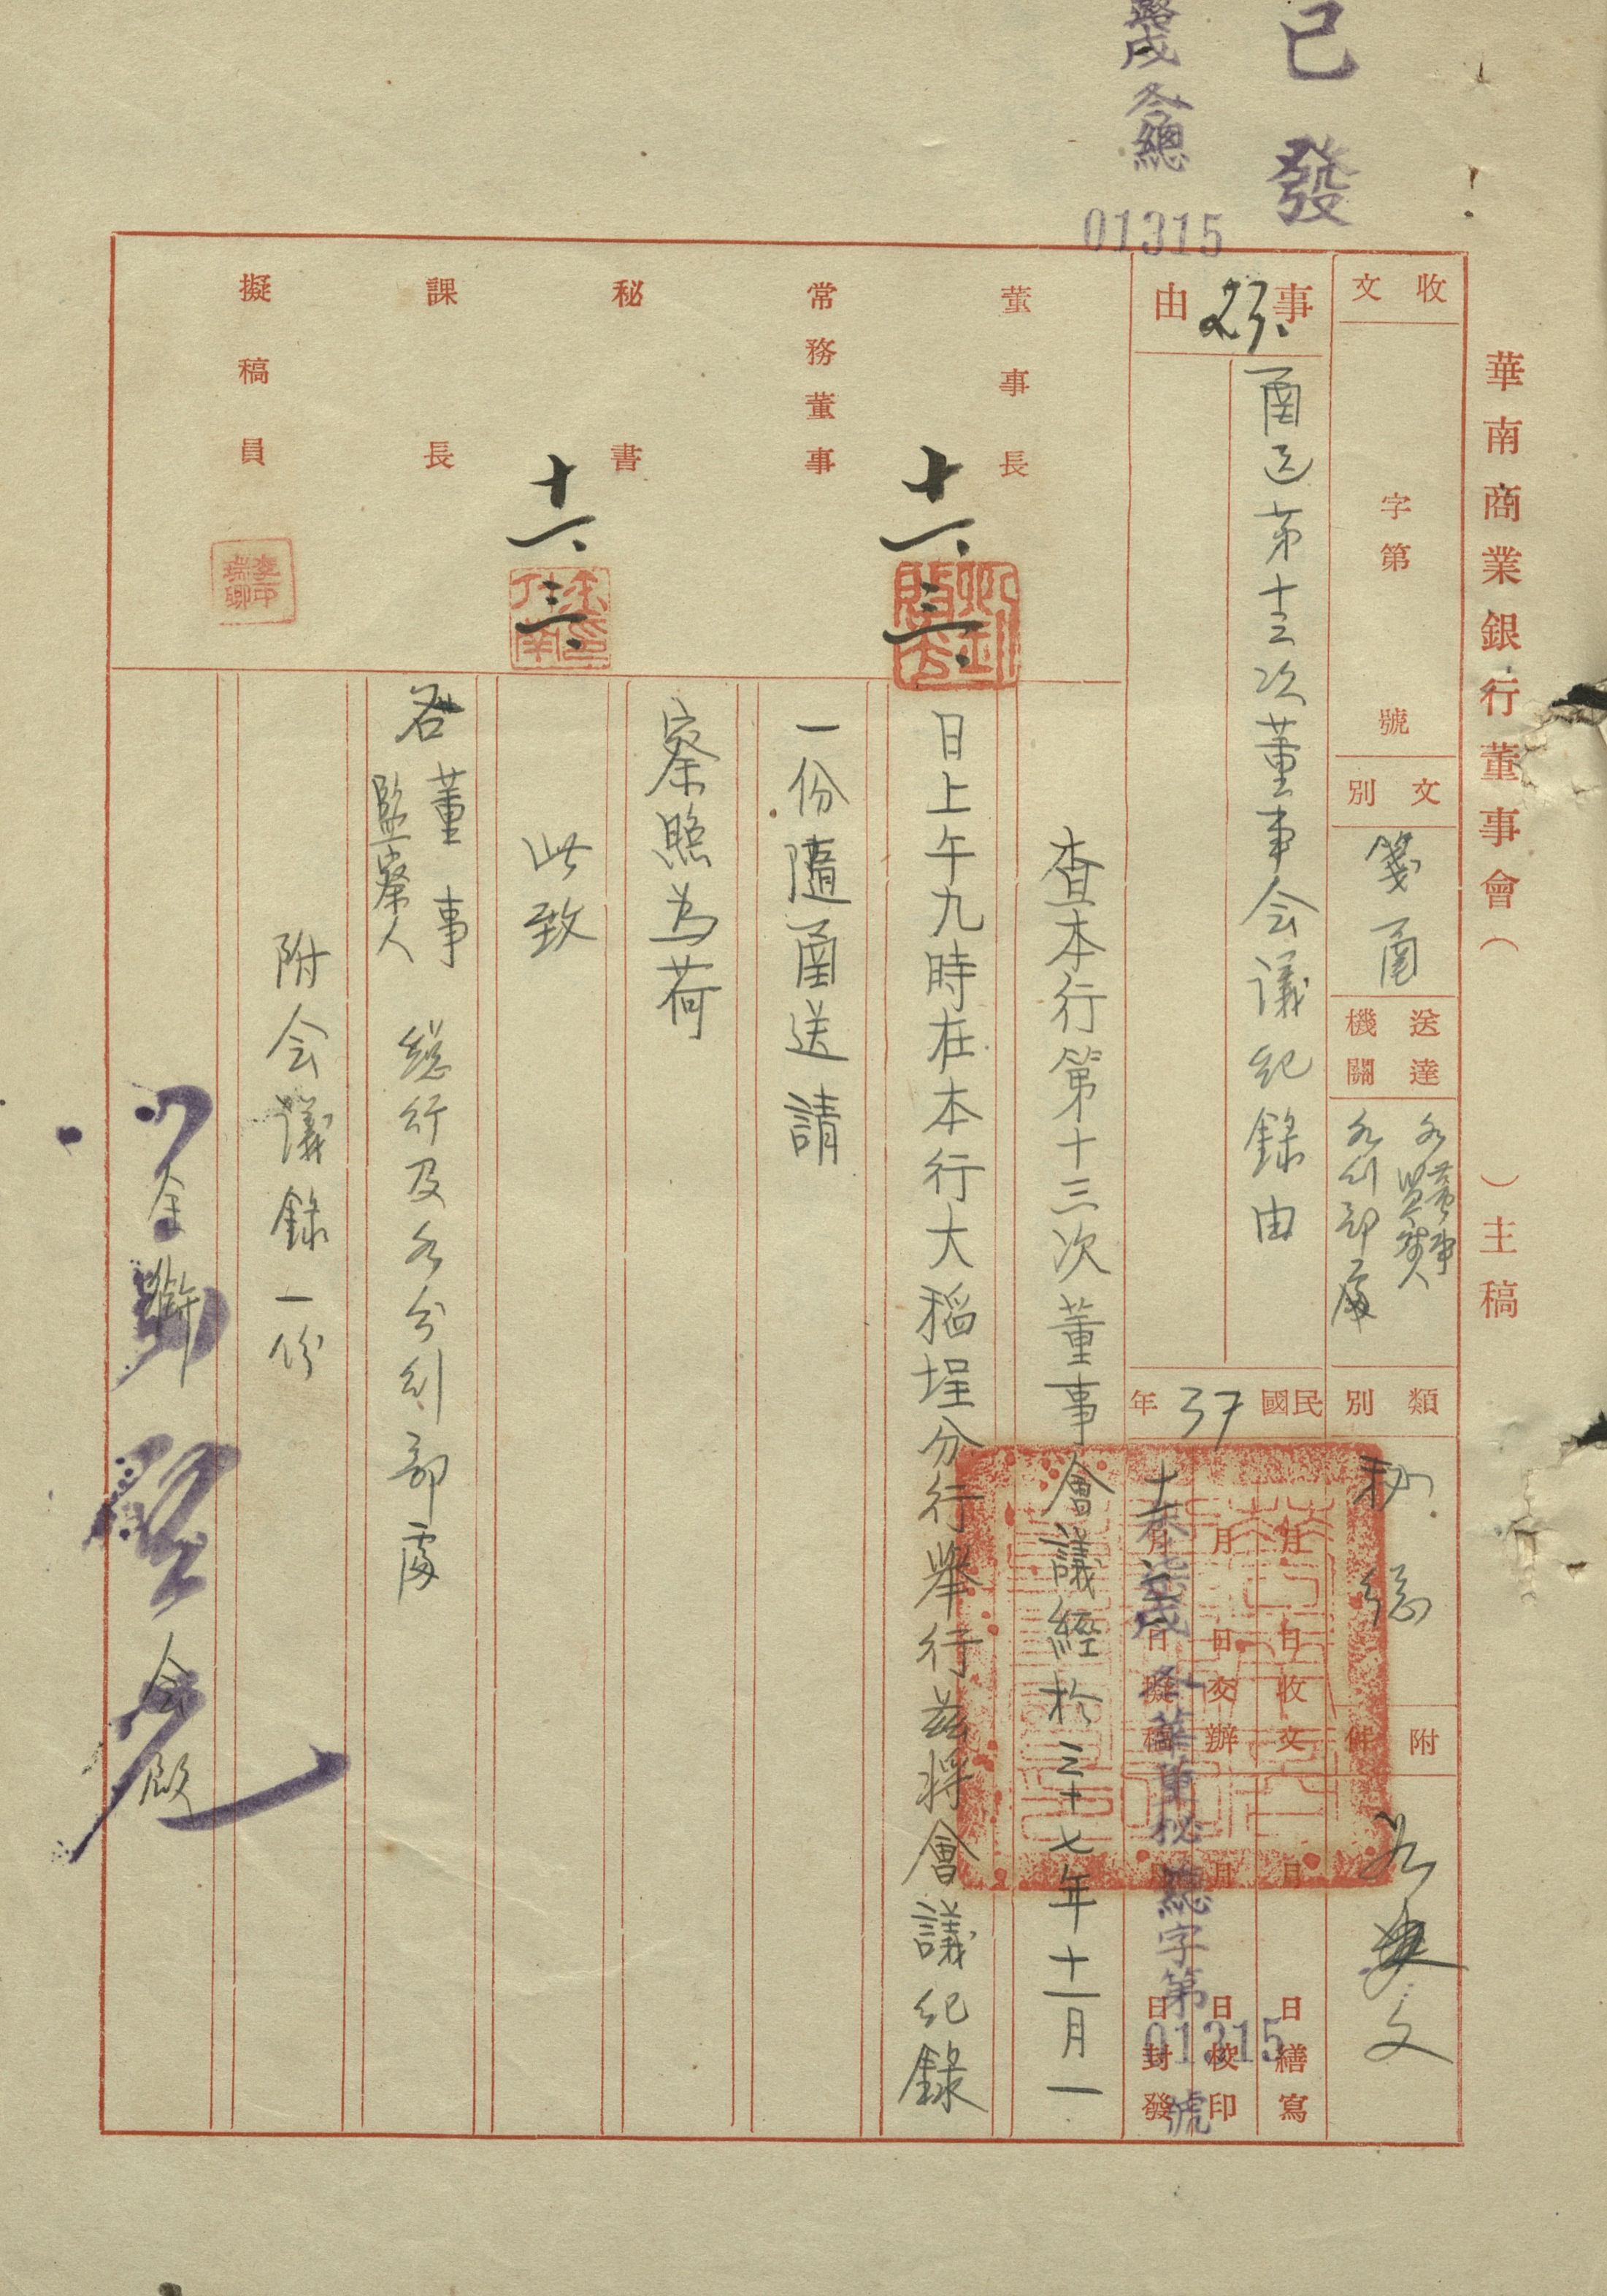 已發
冬總
01315
華南商業銀行董事會（　　）主稿
收文
字第　號
文別
箋函
送達機關
各董事
監察人
各分部處
類別
秘總
附件
事由
函送第十三次董事会議紀錄由
民國37年
月　日收文
月　日交辦
月　日擬稿
月　日繕寫
月　日校印
月　日封發
華董秘總字第01315號
董事長
十一、三、
常務董事
秘書
十一、三、
課長
擬稿員
查本行第十三次董事會議經於三十七年十一月一
日上午九時在本行大稻埕分行舉行茲將會議紀錄
一份隨函送請
察照為荷
此致
各董事
監察人
總行及各分部處
附会議錄一份
全銜
啟